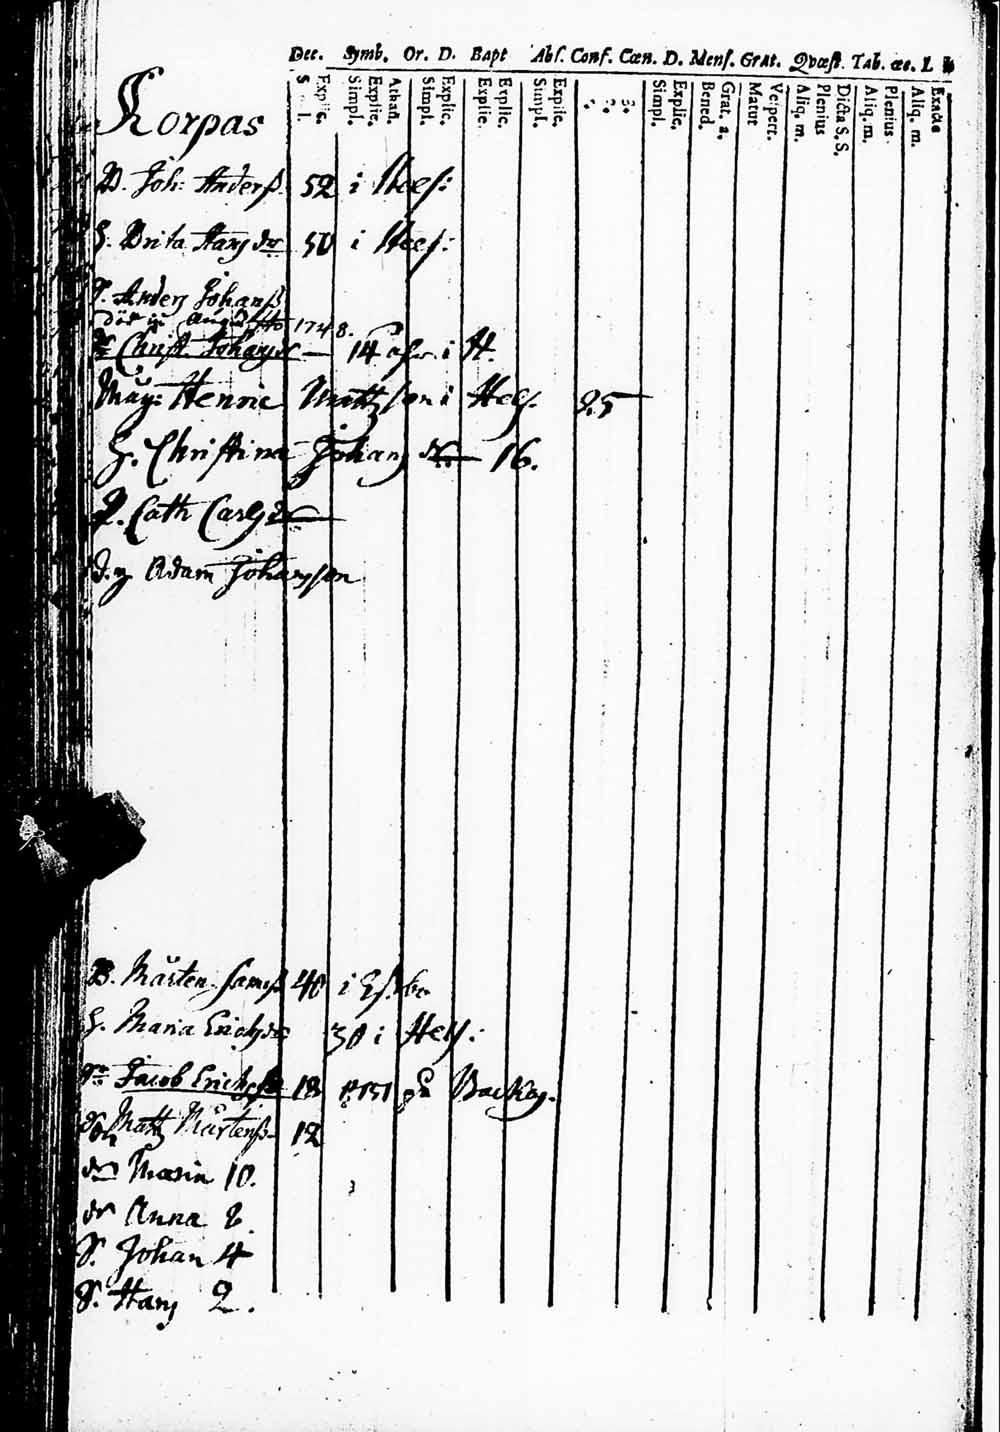 Dec. Symb. Or. D. Bapt Abs. Conf. Cœn. D. Mens. Grat. Qvæst. Tab. œc. L
Explic.
Simpl.
Explic.
Athan.
Simpl.
Explic.
Explic.
Explic.
Simpl.
Explic.
1.
2.
3.
Simpl.
Explic.
Bened.
Grat. a.
Matut
Vespert.
Aliq. m.
Plenius
Dicta S. S.
Aliq. m.
Plenius
Aliq. m.
Exacte
Korpas
B. Joh: Anderß. 52 i Hels:
H. Brita Hansdr 50 i Hels:
S. Anders Johanß
död 1748.
Dr Christ. Johansdr — 14 åhr i H.
Måg: Henric Mattzson i Hels. 25
H. Christina Johansdr — 16.
P. Cath Carlsdr
Adam Johansson
B. Mårten 40 i Esbo
H. Maria Erichsdr 30 i Hels:
Sn Jacob Erichß 18 1751 på Backas.
Son Matz Mårtenß 12
dr Maria 10.
dr Anna 8
S. Johan 4
S. Hans 2.